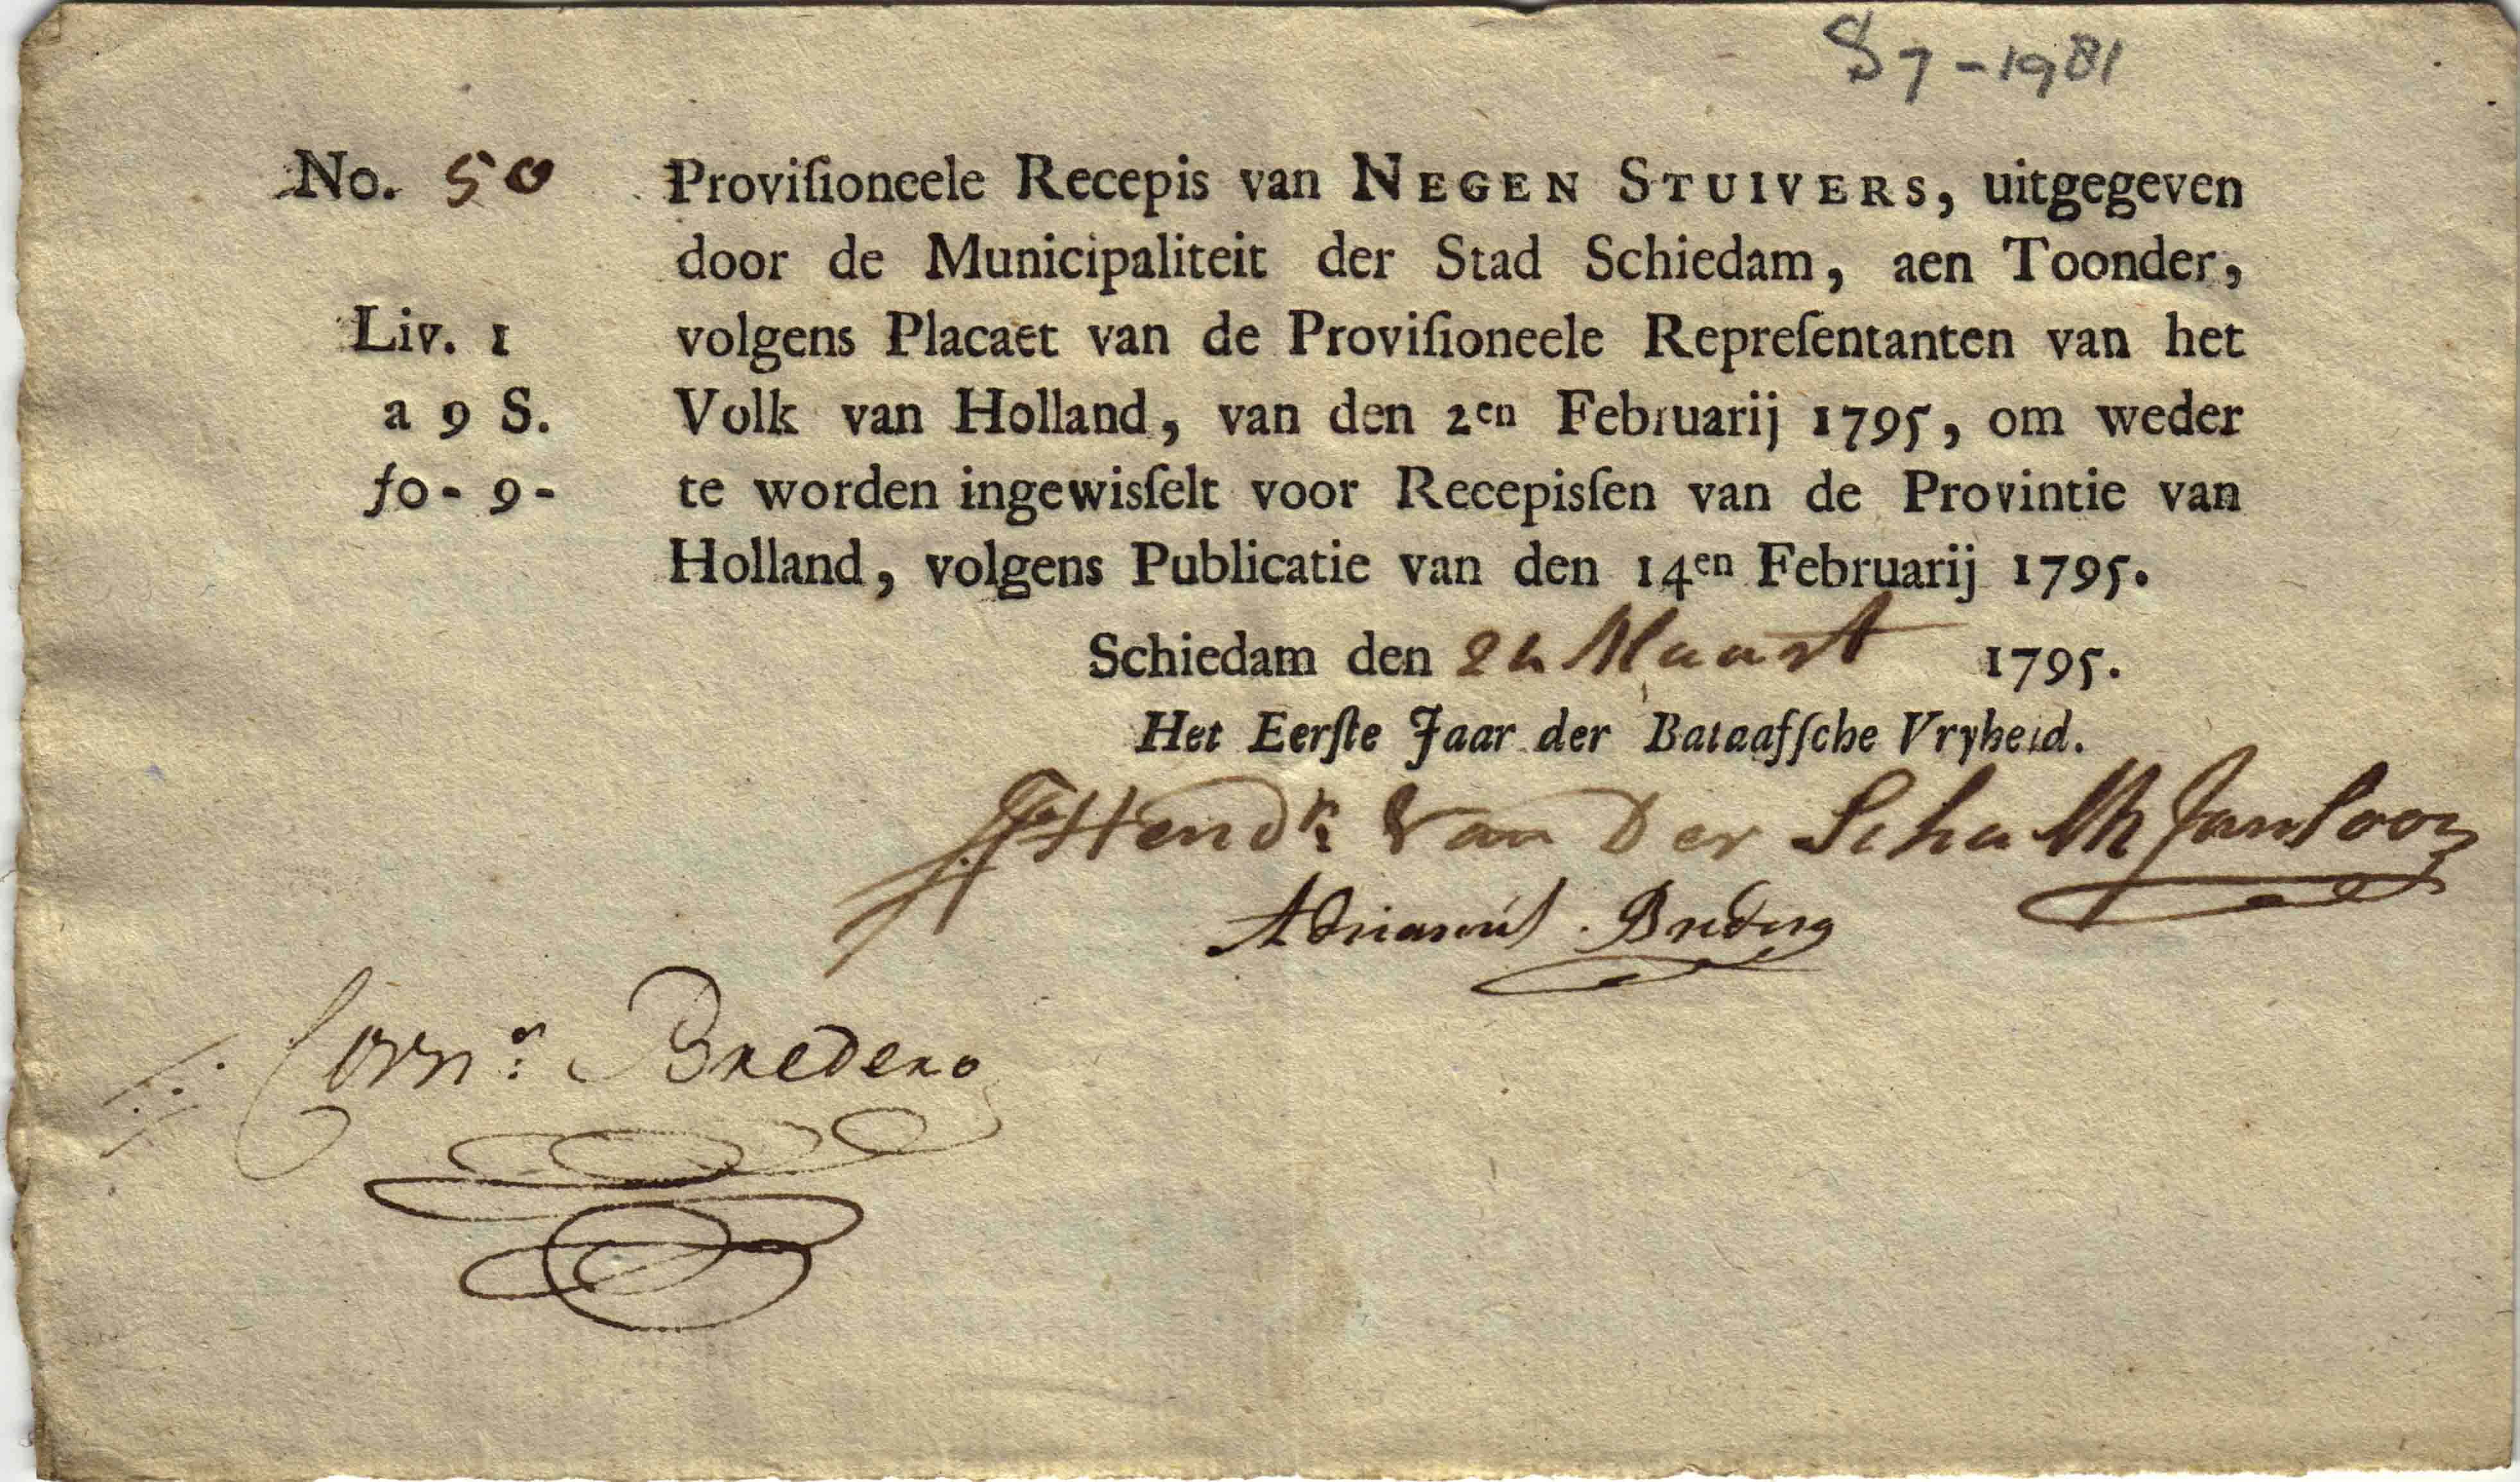 S 7 - 1981
No. 50
Liv. 1
a 9 S.
fo - 9 -
Proviſioneele Recepis van NEGEN STUIVERS, uitgegeven
door de Municipaliteit der Stad Schiedam, aen Toonder,
volgens Placaet van de Proviſioneele Repreſentanten van het
Volk van Holland, van den 2en Februarij 1795, om weder
te worden ingewisſelt voor Recepisſen van de Provintie van
Holland, volgens Publicatie van den 14en Februarij 1795.
Schiedam den Maart 1795.
Het Eerſte Jaar der Bataafſche Vryheid.
Hendk Van Der Schalk Janſoon
Adrianus
Corns: Bredero